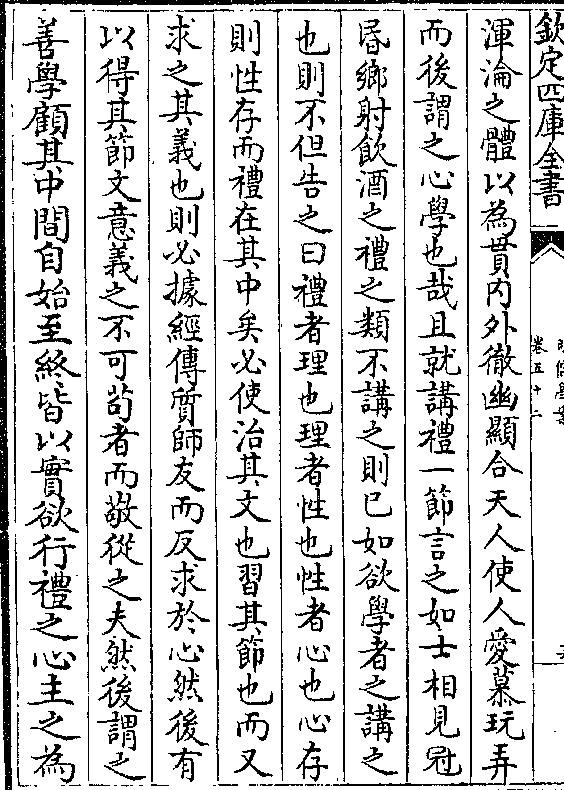 欽定四庫全書
卷五十二
渾淪之體以為貫内外徹幽顯合天人使人愛慕玩弄
而後謂之心學也哉且就講禮一節言之如士相見冠
昏鄉射飲酒之禮之類不講之則已如欲學者之講之
也則不但告之曰禮者理也理者性也性者心也心存
則性存而禮在其中矣必使治其文也習其節也而又
求之其義也則必據經傳質師友而反求於心然後有
以得其節文意義之不可苟者而敬從之夫然後謂之
善學顧其中間自始至終皆以實欲行禮之心主之為